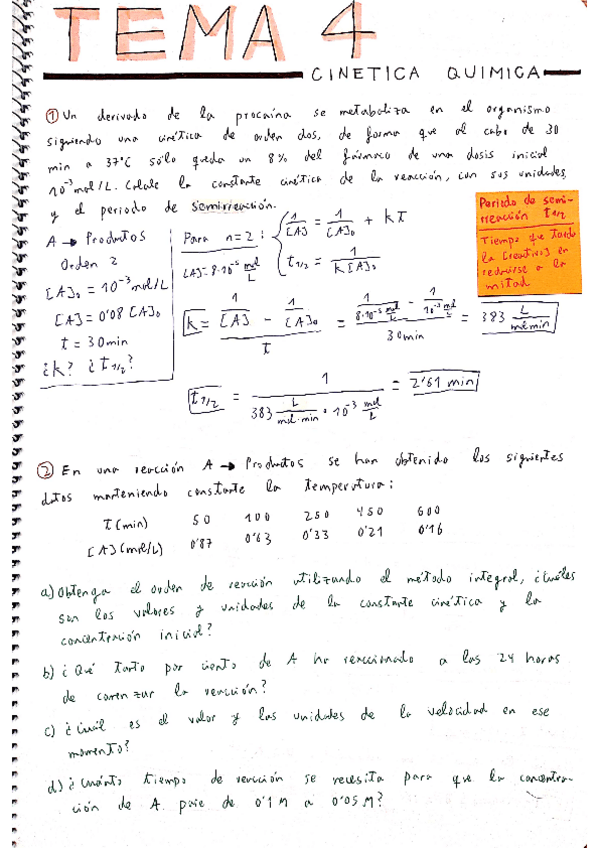 TEMA 4
CINETICA QUIMICA
① Un derivado de la procaína se metaboliza en el organismo
siguiendo una cinética de orden dos, de forma que al cabo de 30
min a 37°C sólo queda un 8% del fármaco de una dosis inicial
10⁻³ mol/L. Calcule la constante cinética de la reacción, con sus unidades,
y el periodo de semirreacción.
A → Productos
Orden 2
[A]₀ = 10⁻³ mol/L
[A] = 0'08 [A]₀
t = 30 min
¿k? ¿t1/2?
Para n=2:
[A] = 8·10⁻⁵ mol/L
1/[A] = 1/[A]₀ + kt
t1/2 = 1/k[A]₀
Periodo de semi-
rreación t1/2
Tiempo que tarda
la [reactivo] en
reducirse a la
mitad
k = (1/[A] - 1/[A]₀)/t = (1/(8·10⁻⁵ mol/L) - 1/(10⁻³ mol/L))/30 min = 383 L/mol·min
t1/2 = 1/(383 L/mol·min · 10⁻³ mol/L) = 2'61 min
② En una reacción A → Productos se han obtenido los siguientes
datos manteniendo constante la temperatura:
t (min) 50 100 250 450 600
[A] (mol/L) 0'87 0'63 0'33 0'21 0'16
a) Obtenga el orden de reacción utilizando el método integral, ¿Cuáles
son los valores y unidades de la constante cinética y la
concentración inicial?
b) ¿Qué tanto por ciento de A ha reaccionado a las 24 horas
de comenzar la reacción?
c) ¿Cuál es el valor y las unidades de la velocidad en ese
momento?
d) ¿Cuánto tiempo de reacción se necesita para que la concentra-
ción de A pase de 0'1 M a 0'05 M?